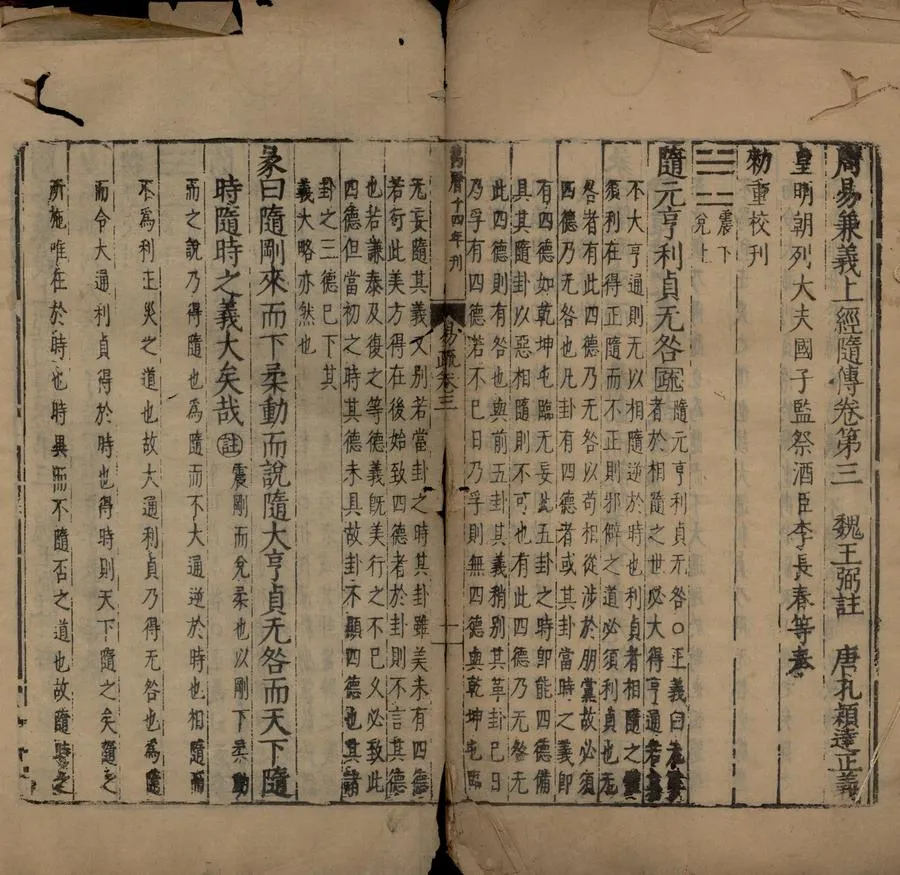 周易兼義上經隨傳卷第三　魏王弼註　唐孔穎達正義
皇明朝列大夫國子監祭酒臣李長春等奉
勑重校刊
震下
兌上
隨元亨利貞无咎疏隨元亨利貞无咎○正義曰
者於相隨之世必大得亨通若
不大亨通則无以相隨逆於時也利貞者相隨之
須利在得正隨而不正則邪僻之道必須利貞也无
咎者有此四德乃无咎以苟相從涉於朋黨故必須
四德乃无咎也凡卦有四德者或其卦當時之義即
有四德如乾坤屯臨无妄此五卦之時即能四德備
具其隨卦以惡相隨則不可也有此四德乃无咎无
此四德則有咎也與前五卦其義稍別其革卦巳日
乃孚有四德若不巳日乃孚則無四德與乾坤屯臨
萬曆十四年刊
易疏卷三
一
无妄隨其義又別若當卦之時其卦雖美未有四德
若行此美方得在後始致四德者於卦則不言其德
也若謙泰及復之等德義既美行之不已久必致此
四德但當初之時其德未具故卦不顯四德也其諸
卦之三德已下其
義大略亦然也
彖曰隨剛來而下柔動而說隨大亨貞无咎而天下隨
時隨時之義大矣哉註震剛而兌柔也以剛下柔動
而之說乃得隨也為隨而不大通逆於時也相隨而
不為利正災之道也故大通利貞乃得无咎也為隨
而令大通利貞得於時也得時則天下隨之矣隨之
所施唯在於時也時異而不隨否之道也故隨時之